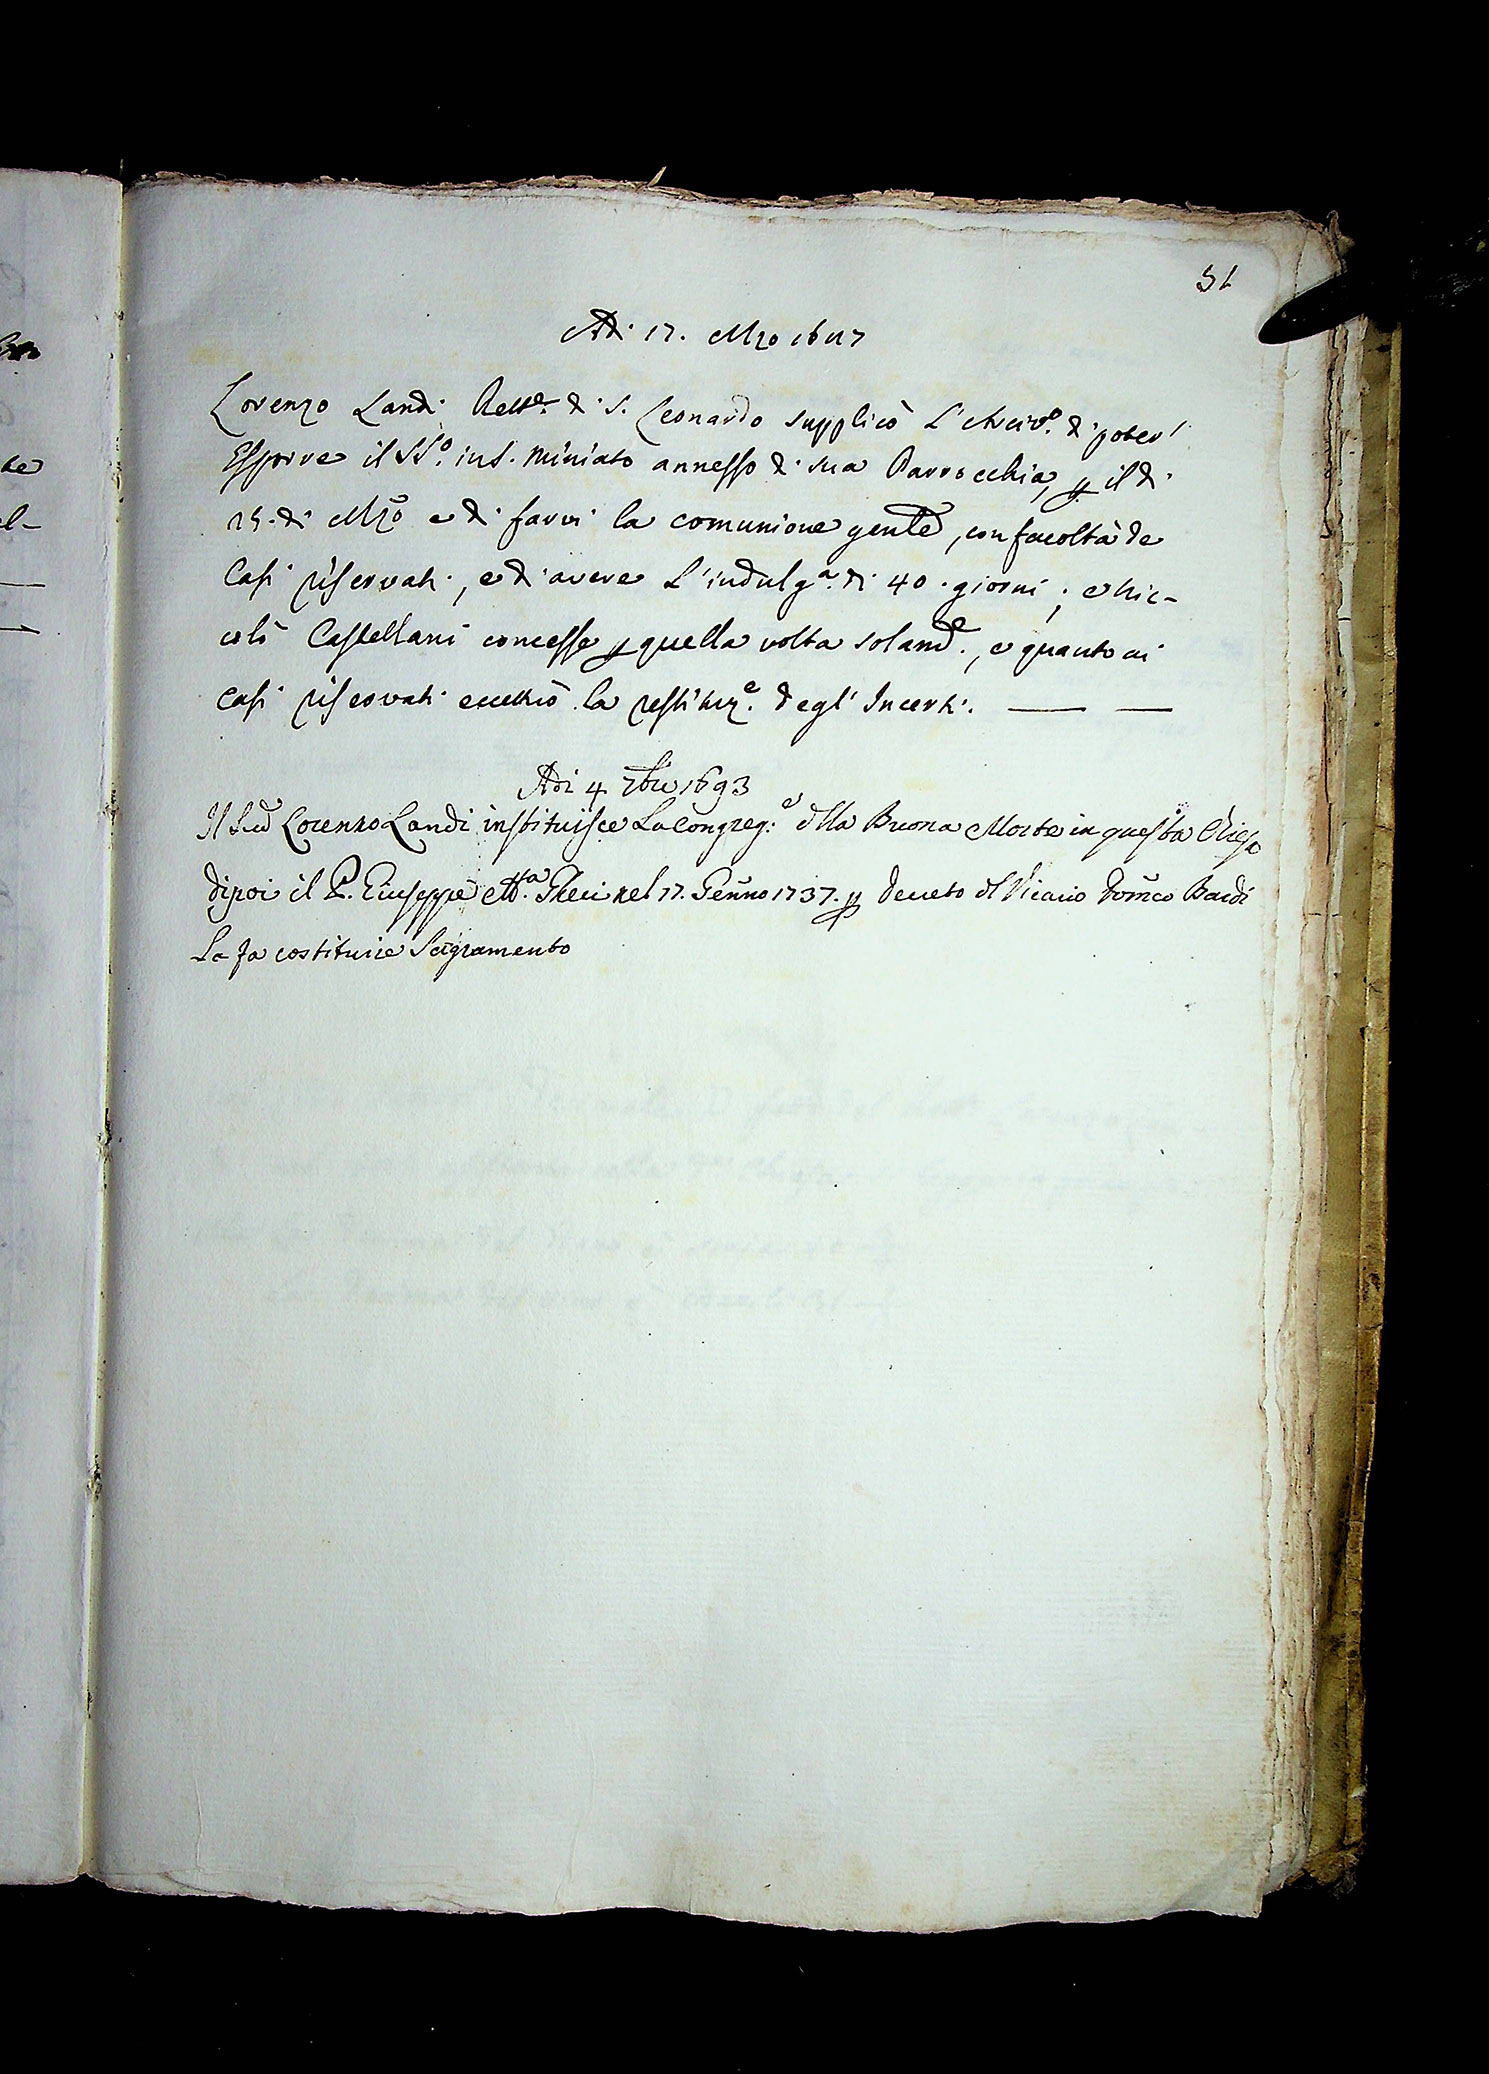 51
Adì 17. Mzo 16
Lorenzo Landi Rettre. di S. Leonardo supplicò l'Arcivo. di poter
Esporre il SSo. in S. Miniato annesso di sua Parrocchia, p il dì
25. di Mzo e di farvi la comunione genle, con facoltà de
Casi riservati, e di avere l'indulga. di 40. giorni; e Nic-
colò Castellani concesse p quella volta solame., e quanto ai
casi riservati eccettuò la restituze. degl'Incerti.
Adi 4 7bre 1693
Il Sud Lorenzo Landi instituisce La Congreg.e dlla Buona Morte in questa Chiesa
dipoi il P. Giuseppe Ma. nel 17. Genno 1737. p decreto dl Vicario Domco Bardi
La fa costituire Sagramento
te